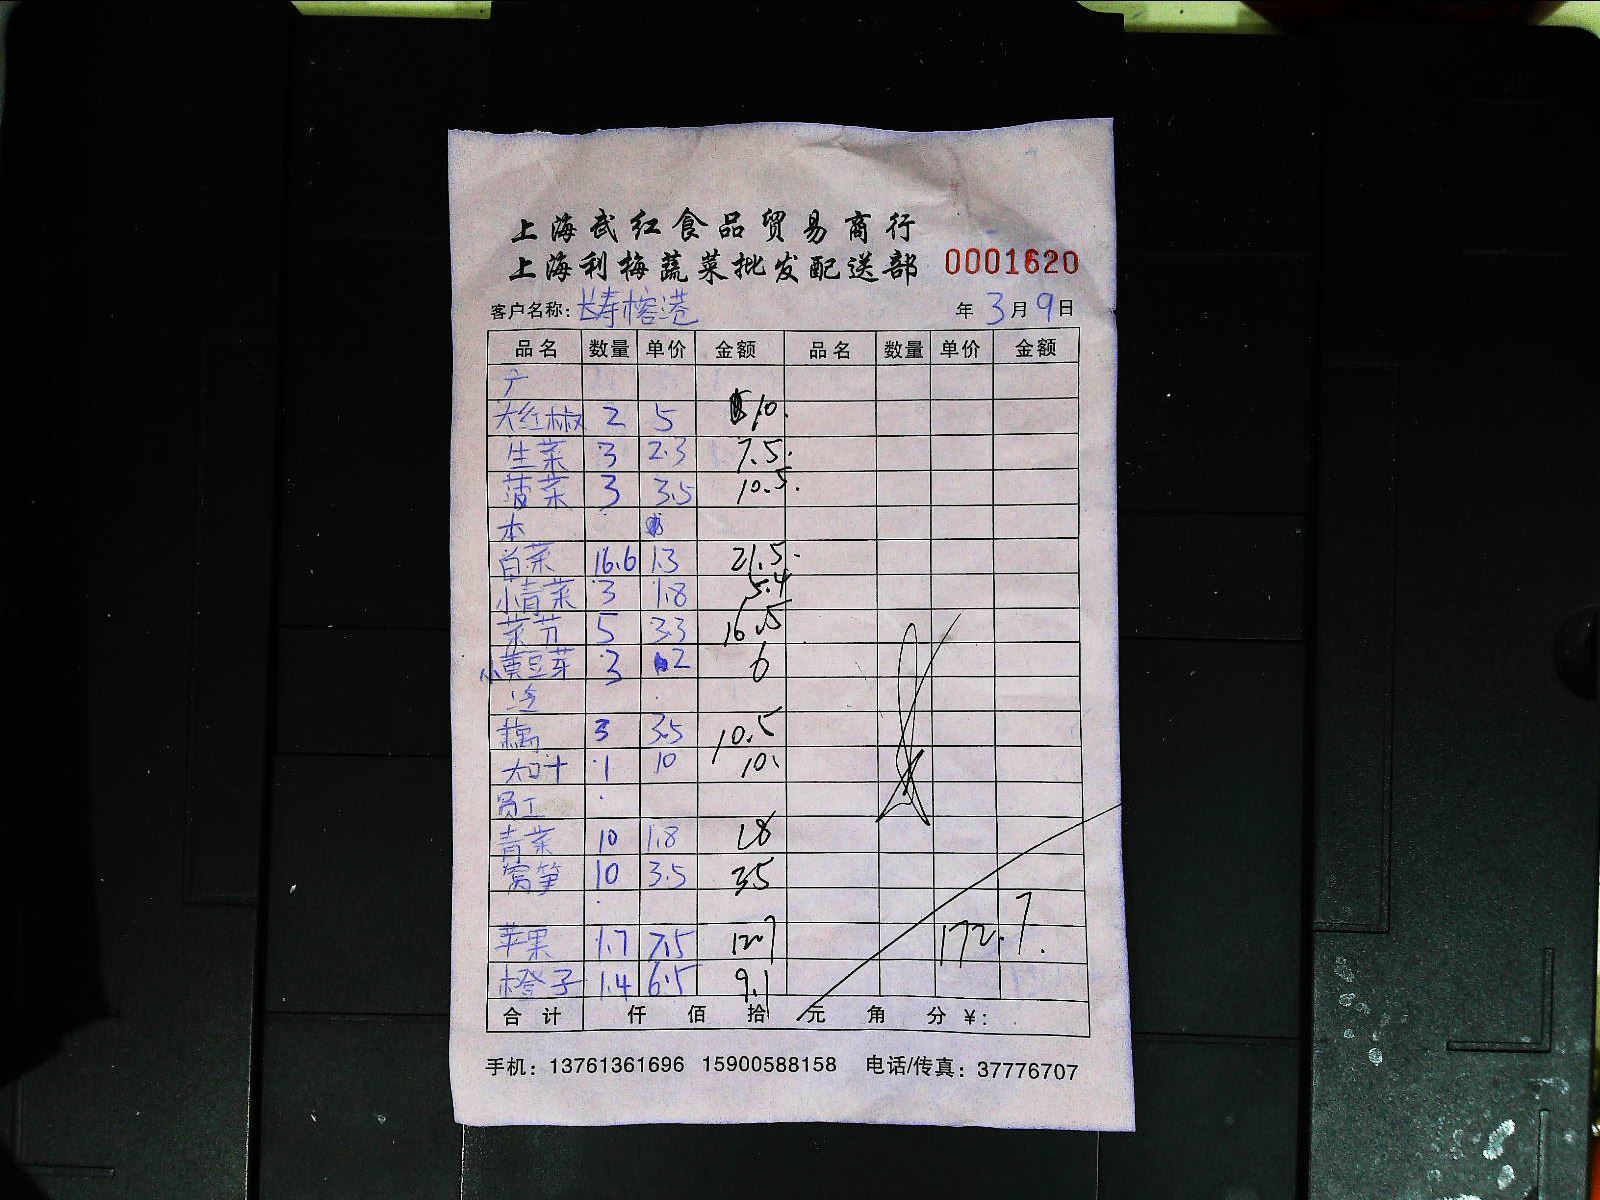 上海武红食品贸易商行
上海利梅蔬菜批发配送部 0001620
客户名称: 长寿榕港 年 3 月 9 日
品名 数量 单价 金额 品名 数量 单价 金额
大红椒 2 5 10.
生菜 3 2.3 7.5.
菠菜 3 3.5 10.5.
本
白菜 16.6 1.3 21.5.
小青菜 3 1.8 5.4
菜节 5 3.3 16.5
小黄豆芽 3 2 6
冷
藕 3 3.5 10.5
大叶 1 10 10.
员工
青菜 10 1.8 18
窝笋 10 3.5 35
苹果 1.7 7.5 12.7 172.7.
橙子 1.4 6.5 9.1
合计 仟 佰 拾 元 角 分 ¥:
手机: 13761361696 15900588158 电话/传真: 37776707